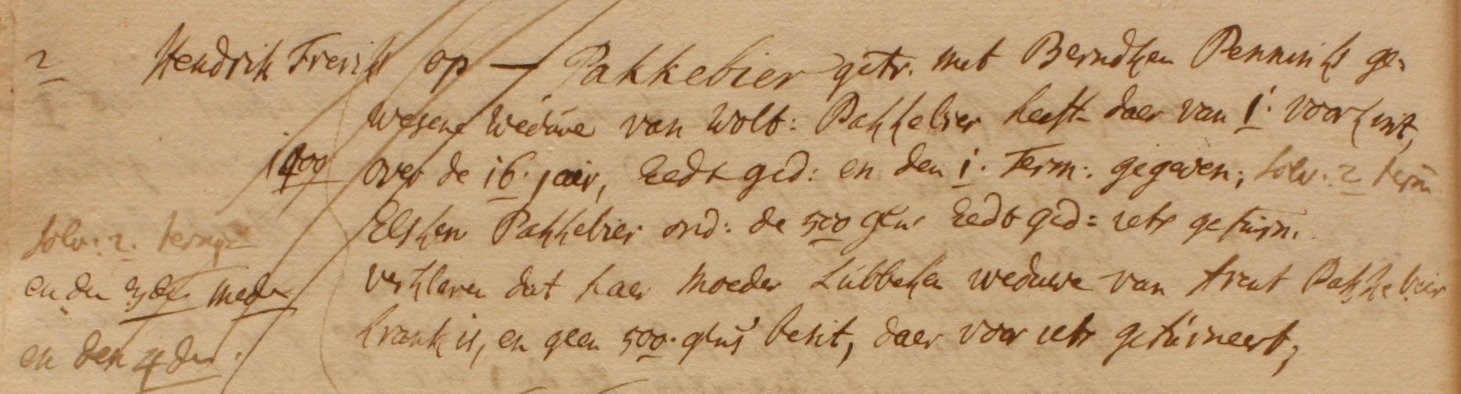 2 Hendrik Frerik op — Pakkebier getr. met Berndken Penninks ge-
wesene Weduwe van Wolb: Pakkebier heeft daer van 1. voorkint,
1400 over de 16. jaer, Eedt ged: en den 1. Term: gegeven; solv: 2 term
Elsken Pakkebier ond: de 500 glns Eedt ged= iets gefurn.
solv: 2. termyn
verklaren dat haer moeder Lubbeken weduwe van Arent Pakkebier
en den 3den mede
krank is, en geen 500. glns besit, daer voor iets gefurneert;
en den 4den.